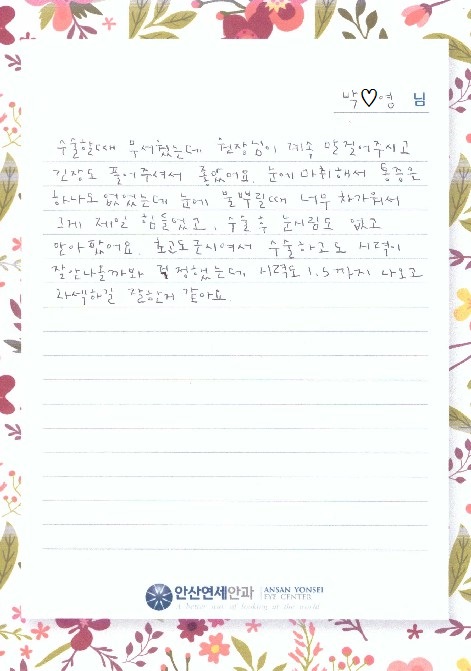 박♡영 님
수술할때 무서웠는데 원장님이 계속 말걸어주시고
긴장도 풀어주셔서 좋았어요. 눈에 마취해서 통증은
하나도 없었는데 눈에 물뿌릴때 너무 차가워서
그게 제일 힘들었고, 수술 후 눈시림도 없고
안아팠어요. 초고도근시여서 수술하고도 시력이
잘안나올까봐 걱정했는데 시력도 1.5 까지 나오고
라섹하길 잘한거 같아요.
안산연세안과 ANSAN YONSEI EYE CENTER
A better way of looking at the world